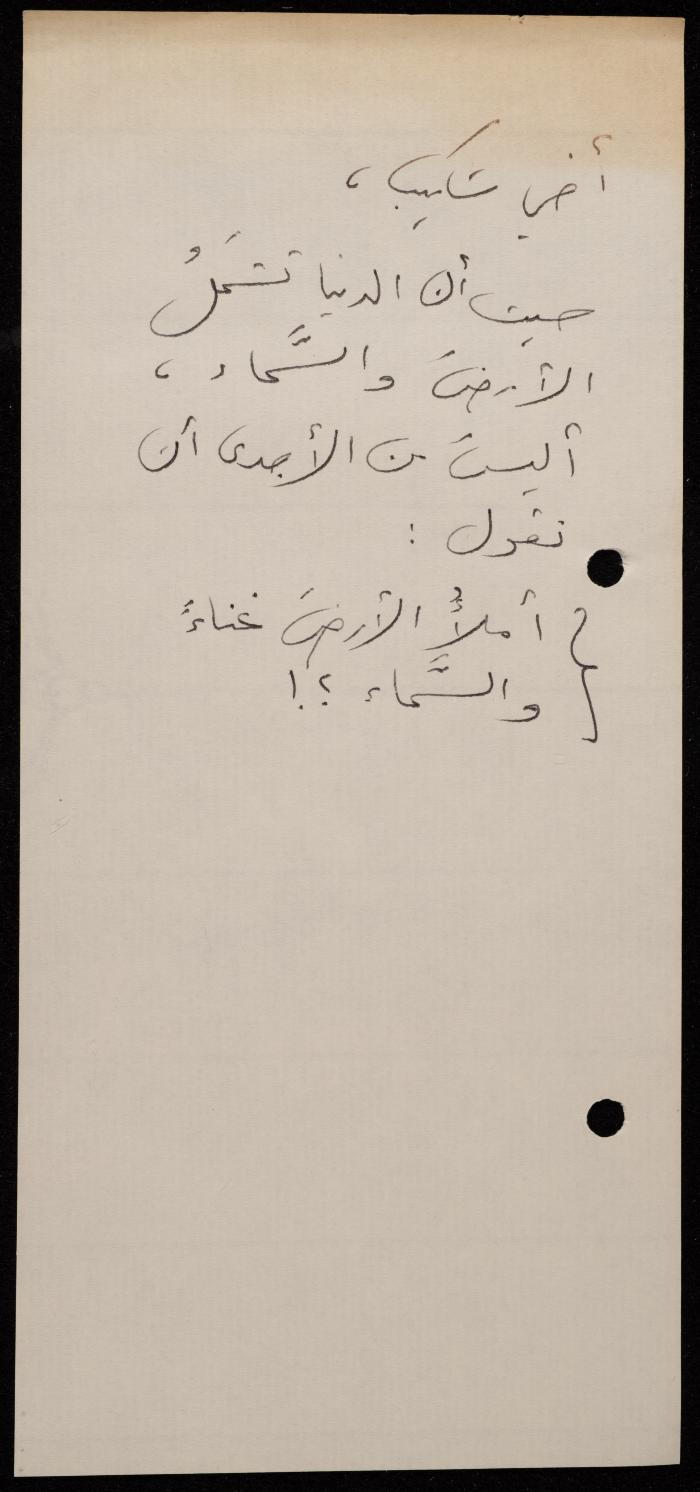 أخي شكيب،
حيث أن الدنيا تشملُ
الأرضَ والسَّماء،
أليسَ من الأجدى أن
نقول :
أملأُ الأرضَ غناءً
والسَّماء ؟!